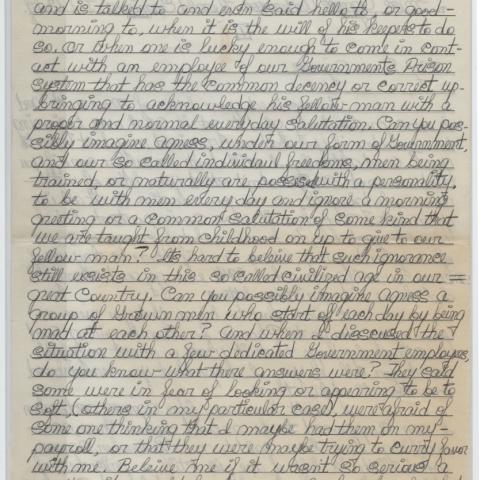 and is talked to and even said hello to, or good-
morning to, when it is the will of his keepers to do
so. Or when one is lucky enough to come in cont-
act with an employee of our Governments Prison
system that has the common decency or correct up-
bringing to acknowledge his fellow man with a
proper and normal everyday salutation. Can you pos-
sibly imagine agness, under our form of Government,
and our so called individuil freedoms, men being
trained, or naturally are possed with a personality,
to be with men every day and ignore a morning
greeting or a common salutation of some kind that
we are taught from childhood on up to give to our
fellow man? Its hard to beleive that such ignorance
still exists in this so called civilized age in our
great Country. Can you possibly imagine agness a
group of Grown men who start off each day by being
mad at each other? And when I discussed the
situation with a few dedicated Government employees,
do you know what there answers were? They said
some were in fear of looking or appearing to be to
soft, (others in my particular case), were afraid of
some one thinking that I maybe had them on my-
payroll, or that they were maybe trying to curry favor
with me. Beleive me if it wasnt so serious a